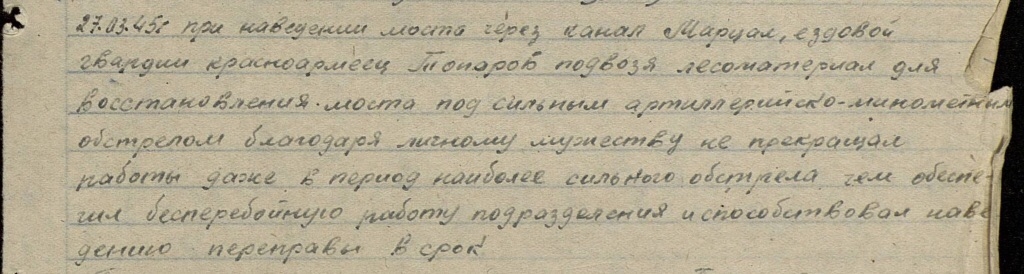 27.03.45г при наведении моста через канал Марцал, ездовой
гвардии красноармеец Топаров подвозя лесоматериал для
восстановления моста под сильным артиллерийско-минометным
обстрелом благодаря личному мужеству не прекращал
работы даже в период наиболее сильного обстрела чем обеспе-
чил бесперебойную работу подразделения и способствовал наве
дению переправы в срок